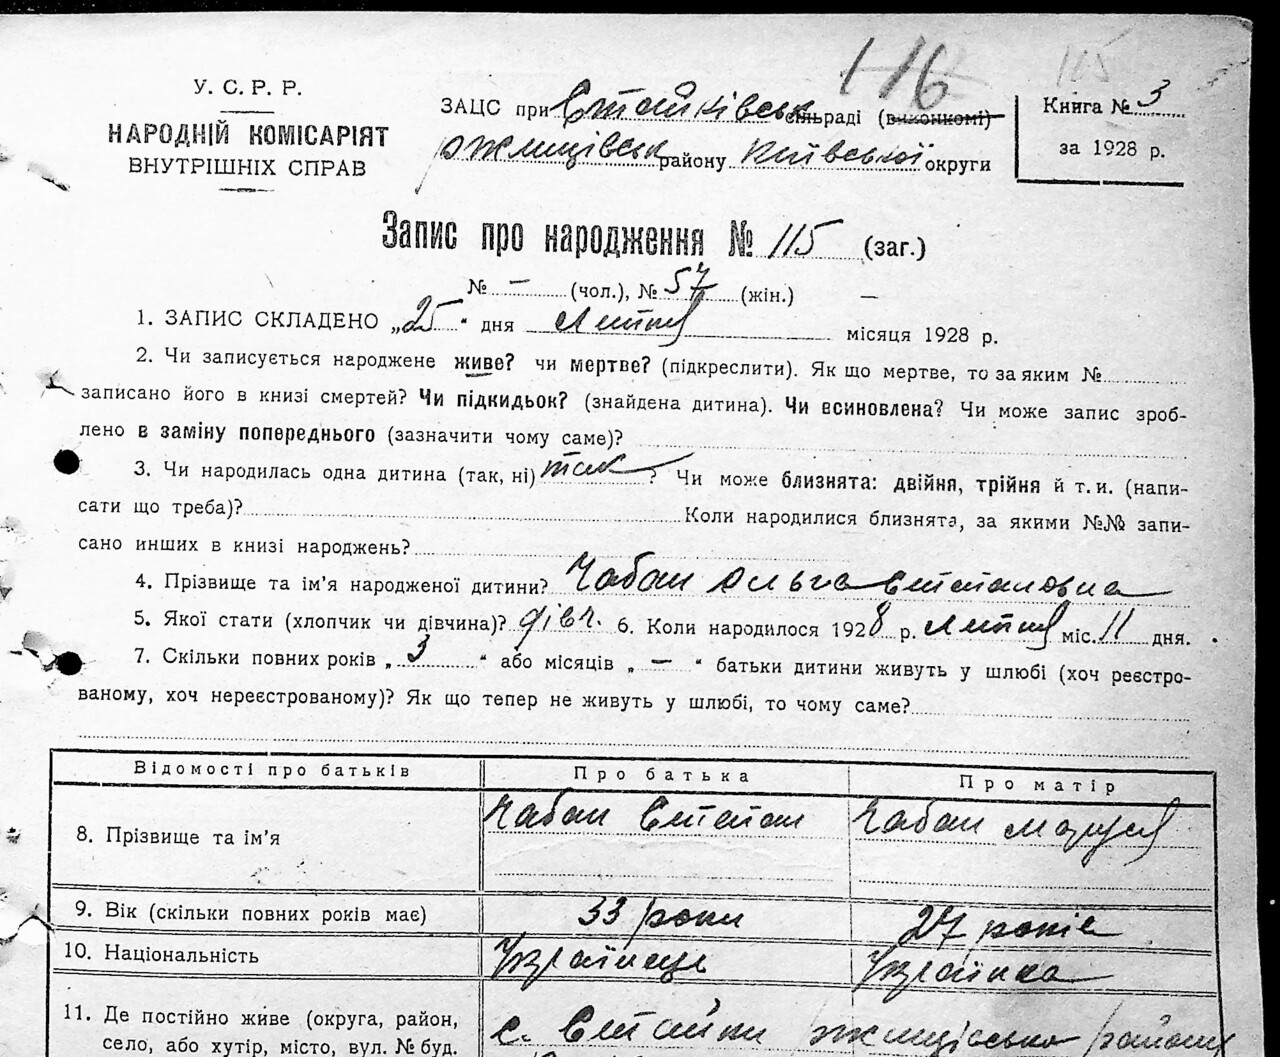 116
115
У. С. Р. Р.
НАРОДНІЙ КОМІСАРІЯТ
ВНУТРІШНІХ СПРАВ
ЗАЦС при Стайківськ сільраді (виконкомі)
Ржищівськ району Київської округи
Книга № 3
за 1928 р.
Запис про народження № 115 (заг.)
№ — (чол.), № 57 (жін.) —
1. ЗАПИС СКЛАДЕНО „25“ дня Липня місяця 1928 р.
2. Чи записується народжене живе? чи мертве? (підкреслити). Як що мертве, то за яким №
записано його в книзі смертей? Чи підкидьок? (знайдена дитина). Чи всиновлена? Чи може запис зроб-
лено в заміну попереднього (зазначити чому саме)?
3. Чи народилась одна дитина (так, ні) так? Чи може близнята: двійня, трійня й т. и. (напи-
сати що треба)? Коли народилися близнята, за якими №№ запи-
сано инших в книзі народжень?
4. Прізвище та ім’я народженої дитини? Чабан Ольга Степановна
5. Якої стати (хлопчик чи дівчина)? дівч. 6. Коли народилося 1928 р. Липня міс. 11 дня.
7. Скільки повних років „3“ або місяців „—“ батьки дитини живуть у шлюбі (хоч реєстро-
ваному, хоч нереєстрованому)? Як що тепер не живуть у шлюбі, то чому саме?
Відомості про батьків Про батька Про матір
8. Прізвище та ім’я Чабан Степан Чабан Марія
9. Вік (скільки повних років має) 33 роки 27 років
10. Національність Українець Українка
11. Де постійно живе (округа, район, с. Стайки Ржищівськ району
село, або хутір, місто, вул. № буд.